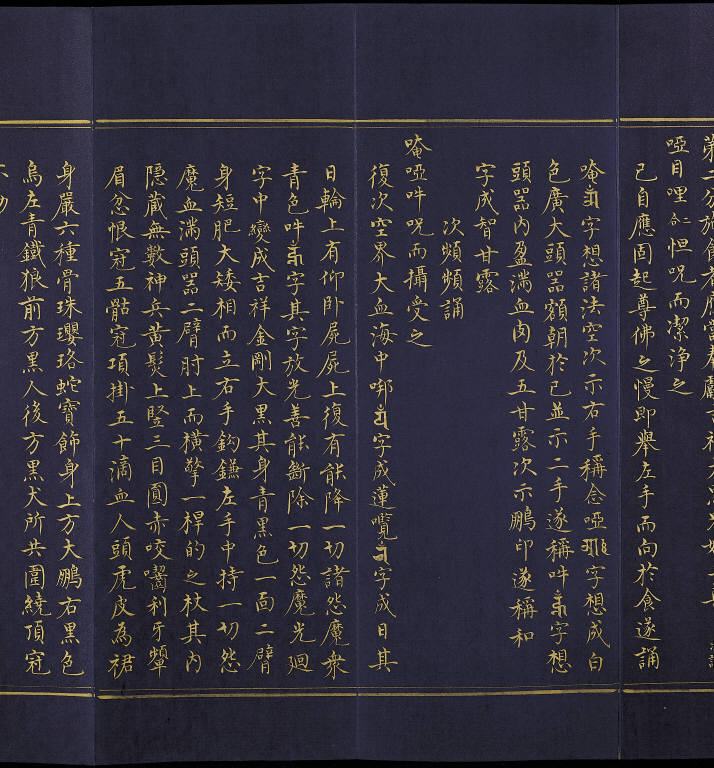 第二分施食者應當奉獻吉祥大黑
啞目哩怛呪而潔淨之
己自應固起尊佛之慢即舉左手而向於食遂誦
唵字想諸法空次示右手稱念啞字想成白
色廣大頭器額朝於己並示二手遂稱吽字想
頭器內盈滿血肉及五甘露次示鵬印遂稱和
字成智甘露
次頻頻誦
唵啞吽呪而攝受之
復次空界大血海中㖿字成蓮囕字成日其
日輪上有仰卧屍屍上復有能降一切諸怨魔衆
青色吽字其字放光善能斷除一切怨魔光廻
字中變成吉祥金剛大黑其身青黑色一面二臂
身短肥大矮相而立右手鈎鐮左手中持一切怨
魔血滿頭器二臂肘上而橫擎一桿的之杖其內
隱藏無數神兵黃髮上竪三目圓赤咬嚙利牙顰
眉忿恨冠五骷冠項掛五十滴血人頭虎皮為裙
身嚴六種骨珠瓔珞蛇寶飾身上方大鵬右黑色
烏左青鐵狼前方黑人後方黑犬所共圍繞頂冠